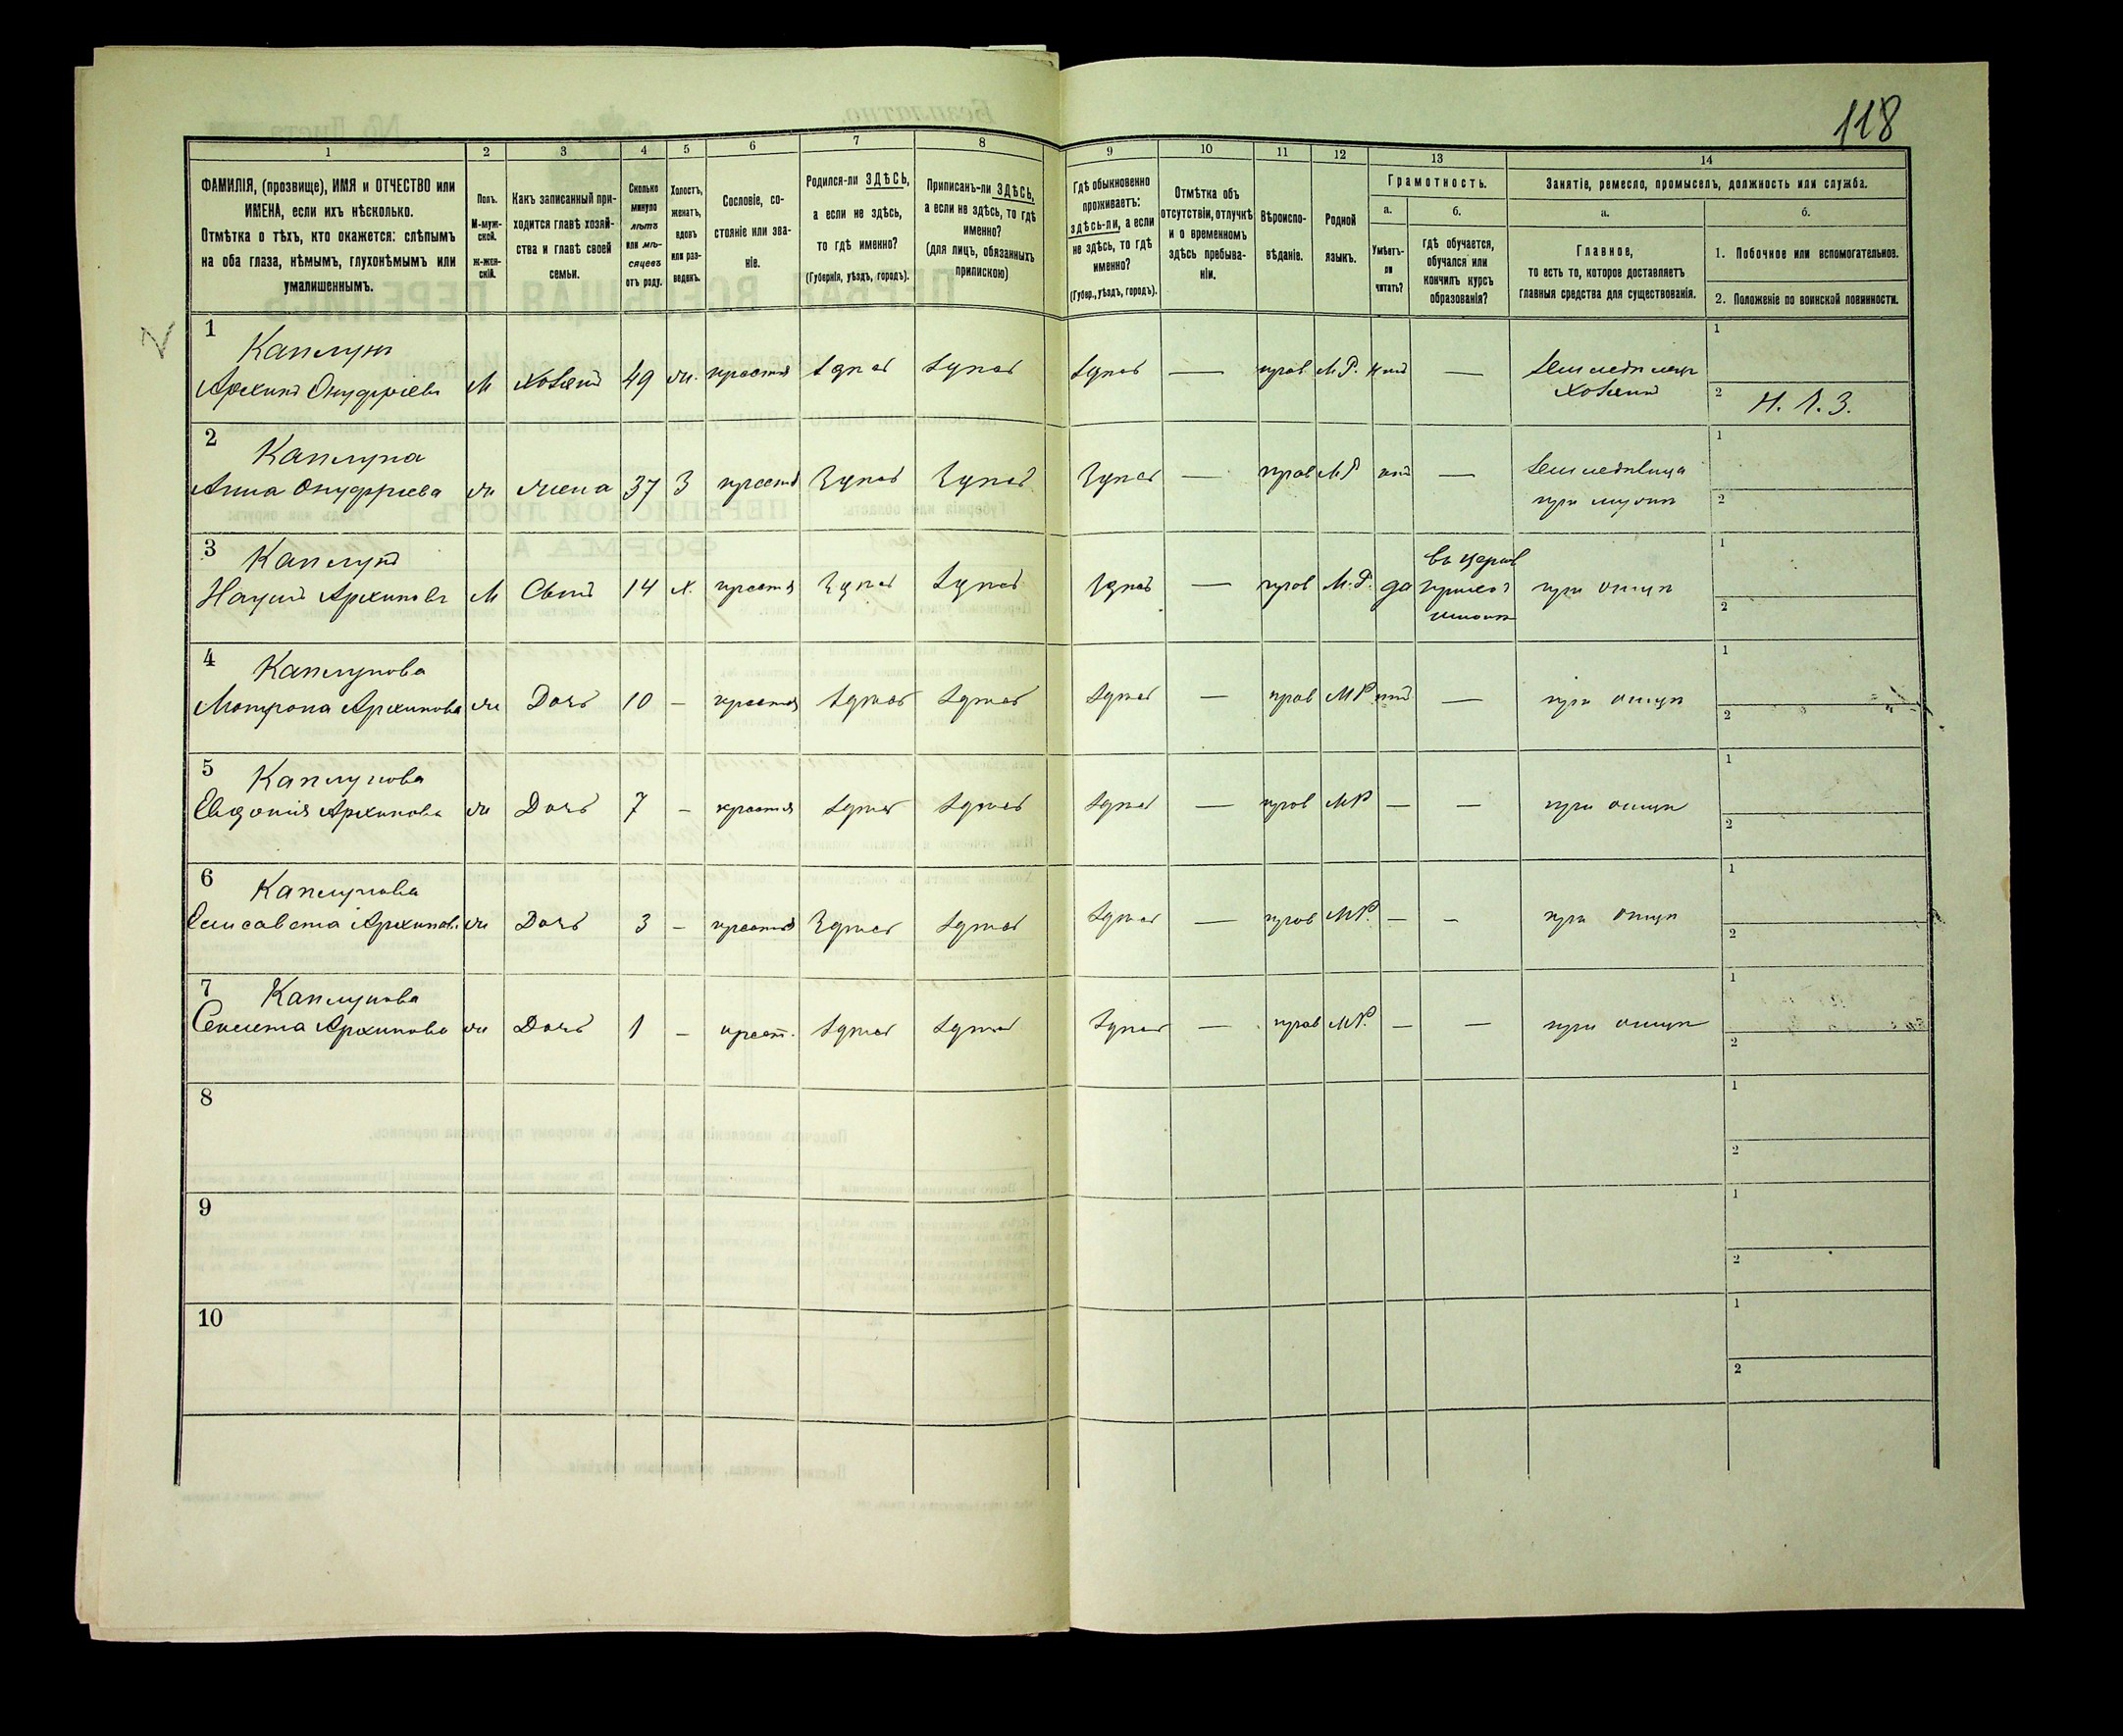 118
1 2 3 4 5 6 7 8 9 10 11 12 13 14
ФАМИЛІЯ, (прозвище), ИМЯ и ОТЧЕСТВО или
ИМЕНА, если ихъ нѣсколько.
Отмѣтка о тѣхъ, кто окажется: слѣпымъ
на оба глаза, нѣмымъ, глухонѣмымъ или
умалишеннымъ.
Полъ.
М-муж-
ской.
Ж-жен-
скій.
Какъ записанный при-
ходится главѣ хозяй-
ства и главѣ своей
семьи.
Сколько
минуло
лѣтъ
или мѣ-
сяцевъ
отъ роду.
Холостъ,
женатъ,
вдовъ
или раз-
веденъ.
Сословіе, со-
стояніе или зва-
ніе.
Родился-ли ЗДѢСЬ,
а если не здѣсь,
то гдѣ именно?
(Губернія, уѣздъ, городъ).
Приписанъ-ли ЗДѢСЬ,
а если не здѣсь, то гдѣ
именно?
(для лицъ, обязанныхъ
припискою)
Гдѣ обыкновенно
проживаетъ:
здѣсь-ли, а если
не здѣсь, то гдѣ
именно?
(Губер., уѣздъ, городъ).
Отмѣтка объ
отсутствіи, отлучкѣ
и о временномъ
здѣсь пребыва-
ніи.
Вѣроиспо-
вѣданіе.
Родной
языкъ.
Грамотность.
а.
Умѣетъ-
ли
читать?
б.
Гдѣ обучается,
обучался или
кончилъ курсъ
образованія?
Занятіе, ремесло, промыселъ, должность или служба.
а.
Главное,
то есть то, которое доставляетъ
главныя средства для существованія.
б.
1. Побочное или вспомогательное.
2. Положеніе по воинской повинности.
1 Каплунъ
Архипъ Онуфріевъ М Хозяинъ 49 ж. крестья Здѣсь Здѣсь Здѣсь — прав М.Р. нѣтъ — Земледѣлец
Хозяинъ
1
2 Н. Л. З.
2 Каплуна
Анна Онуфріева ж жена 37 З крестья Здѣсь Здѣсь Здѣсь — прав М.Р нѣтъ —
при мужѣ
1
2
3 Каплунъ
Наумъ Архиповъ М Сынъ 14 х. крестья Здѣсь Здѣсь Здѣсь — прав М.Р. да
въ церков
приход
школѣ
при отцѣ
1
2
4 Каплунова
Мотрона Архипова ж Дочь 10 — крестья Здѣсь Здѣсь Здѣсь — прав М Р нѣтъ — при отцѣ
1
2
5 Каплунова
Евдокія Архипова ж Дочь 7 — крестья Здѣсь Здѣсь Здѣсь — прав М Р — — при отцѣ
1
2
6 Каплунова
Елисавета Архипов. ж Дочь 3 — крестья Здѣсь Здѣсь Здѣсь — прав М Р. — — при отцѣ
1
2
7 Каплунова
Архипова ж Дочь 1 — крест. Здѣсь Здѣсь Здѣсь — прав М Р. — — при отцѣ
1
2
8
1
2
9
1
2
10
1
2